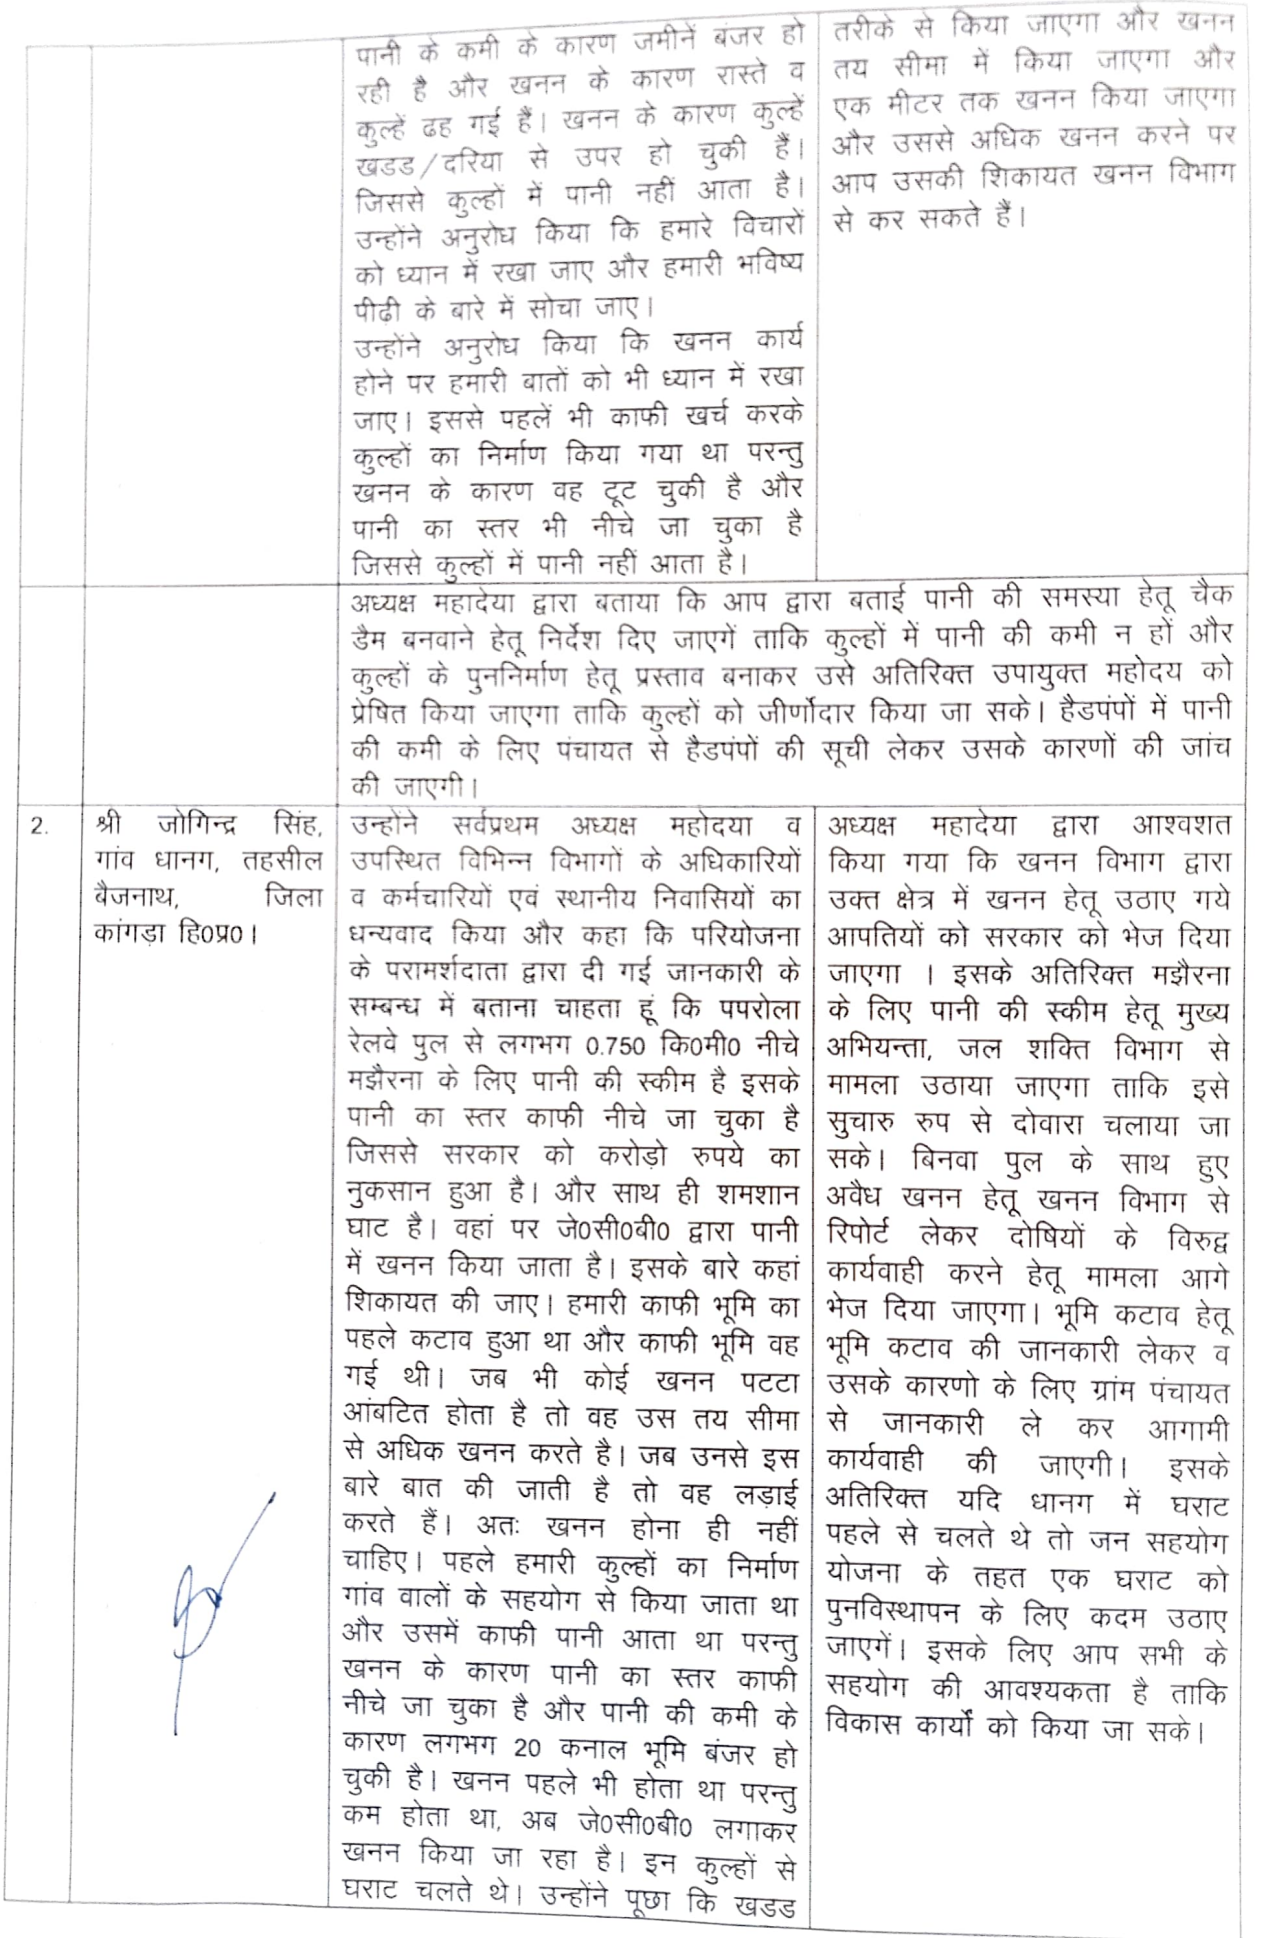 पानी के कमी के कारण जमीनें बंजर हो
रही है और खनन के कारण रास्ते व
कुल्हें ढह गई हैं। खनन के कारण कुल्हें
खडड/दरिया से उपर हो चुकी हैं।
जिससे कुल्हों में पानी नहीं आता है।
उन्होंने अनुरोध किया कि हमारे विचारों
को ध्यान में रखा जाए और हमारी भविष्य
पीढी के बारे में सोचा जाए।
उन्होंने अनुरोध किया कि खनन कार्य
होने पर हमारी बातों को भी ध्यान में रखा
जाए। इससे पहलें भी काफी खर्च करके
कुल्हों का निर्माण किया गया था परन्तु
खनन के कारण वह टूट चुकी है और
पानी का स्तर भी नीचे जा चुका है
जिससे कुल्हों में पानी नहीं आता है।
तरीके से किया जाएगा और खनन
तय सीमा में किया जाएगा और
एक मीटर तक खनन किया जाएगा
और उससे अधिक खनन करने पर
आप उसकी शिकायत खनन विभाग
से कर सकते हैं।
अध्यक्ष महादेया द्वारा बताया कि आप द्वारा बताई पानी की समस्या हेतू चैक
डैम बनवाने हेतू निर्देश दिए जाएगें ताकि कुल्हों में पानी की कमी न हों और
कुल्हों के पुननिर्माण हेतू प्रस्ताव बनाकर उसे अतिरिक्त उपायुक्त महोदय को
प्रेषित किया जाएगा ताकि कुल्हों को जीर्णोदार किया जा सके। हैडपंपों में पानी
की कमी के लिए पंचायत से हैडपंपों की सूची लेकर उसके कारणों की जांच
की जाएगी।
2.
श्री जोगिन्द्र सिंह,
गांव धानग, तहसील
बैजनाथ, जिला
कांगड़ा हि0प्र0।
उन्होंने सर्वप्रथम अध्यक्ष महोदया व
उपस्थित विभिन्न विभागों के अधिकारियों
व कर्मचारियों एवं स्थानीय निवासियों का
धन्यवाद किया और कहा कि परियोजना
के परामर्शदाता द्वारा दी गई जानकारी के
सम्बन्ध में बताना चाहता हूं कि पपरोला
रेलवे पुल से लगभग 0.750 कि0मी0 नीचे
मझैरना के लिए पानी की स्कीम है इसके
पानी का स्तर काफी नीचे जा चुका है
जिससे सरकार को करोड़ो रुपये का
नुकसान हुआ है। और साथ ही शमशान
घाट है। वहां पर जे0सी0बी0 द्वारा पानी
में खनन किया जाता है। इसके बारे कहां
शिकायत की जाए। हमारी काफी भूमि का
पहले कटाव हुआ था और काफी भूमि वह
गई थी। जब भी कोई खनन पटटा
आंबटित होता है तो वह उस तय सीमा
से अधिक खनन करते है। जब उनसे इस
बारे बात की जाती है तो वह लड़ाई
करते हैं। अतः खनन होना ही नहीं
चाहिए। पहले हमारी कुल्हों का निर्माण
गांव वालों के सहयोग से किया जाता था
और उसमें काफी पानी आता था परन्तु
खनन के कारण पानी का स्तर काफी
नीचे जा चुका है और पानी की कमी के
कारण लगभग 20 कनाल भूमि बंजर हो
चुकी है। खनन पहले भी होता था परन्तु
कम होता था, अब जे0सी0बी0 लगाकर
खनन किया जा रहा है। इन कुल्हों से
घराट चलते थे। उन्होंने पूछा कि खडड
अध्यक्ष महादेया द्वारा आश्वशत
किया गया कि खनन विभाग द्वारा
उक्त क्षेत्र में खनन हेतू उठाए गये
आपतियों को सरकार को भेज दिया
जाएगा । इसके अतिरिक्त मझैरना
के लिए पानी की स्कीम हेतू मुख्य
अभियन्ता, जल शक्ति विभाग से
मामला उठाया जाएगा ताकि इसे
सुचारु रुप से दोवारा चलाया जा
सके। बिनवा पुल के साथ हुए
अवैध खनन हेतू खनन विभाग से
रिपोर्ट लेकर दोषियों के विरुद्व
कार्यवाही करने हेतू मामला आगे
भेज दिया जाएगा। भूमि कटाव हेतू
भूमि कटाव की जानकारी लेकर व
उसके कारणो के लिए ग्रांम पंचायत
से जानकारी ले कर आगामी
कार्यवाही की जाएगी। इसके
अतिरिक्त यदि धानग में घराट
पहले से चलते थे तो जन सहयोग
योजना के तहत एक घराट को
पुनविस्थापन के लिए कदम उठाए
जाएगें। इसके लिए आप सभी के
सहयोग की आवश्यकता है ताकि
विकास कार्यों को किया जा सके।